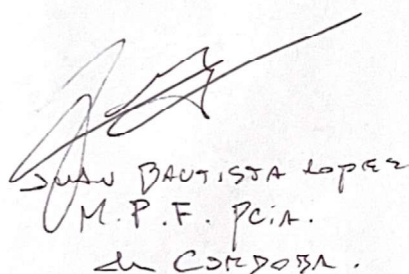 JUAN BAUTISTA LOPEZ
M.P.F. PCIA.
de CORDOBA.